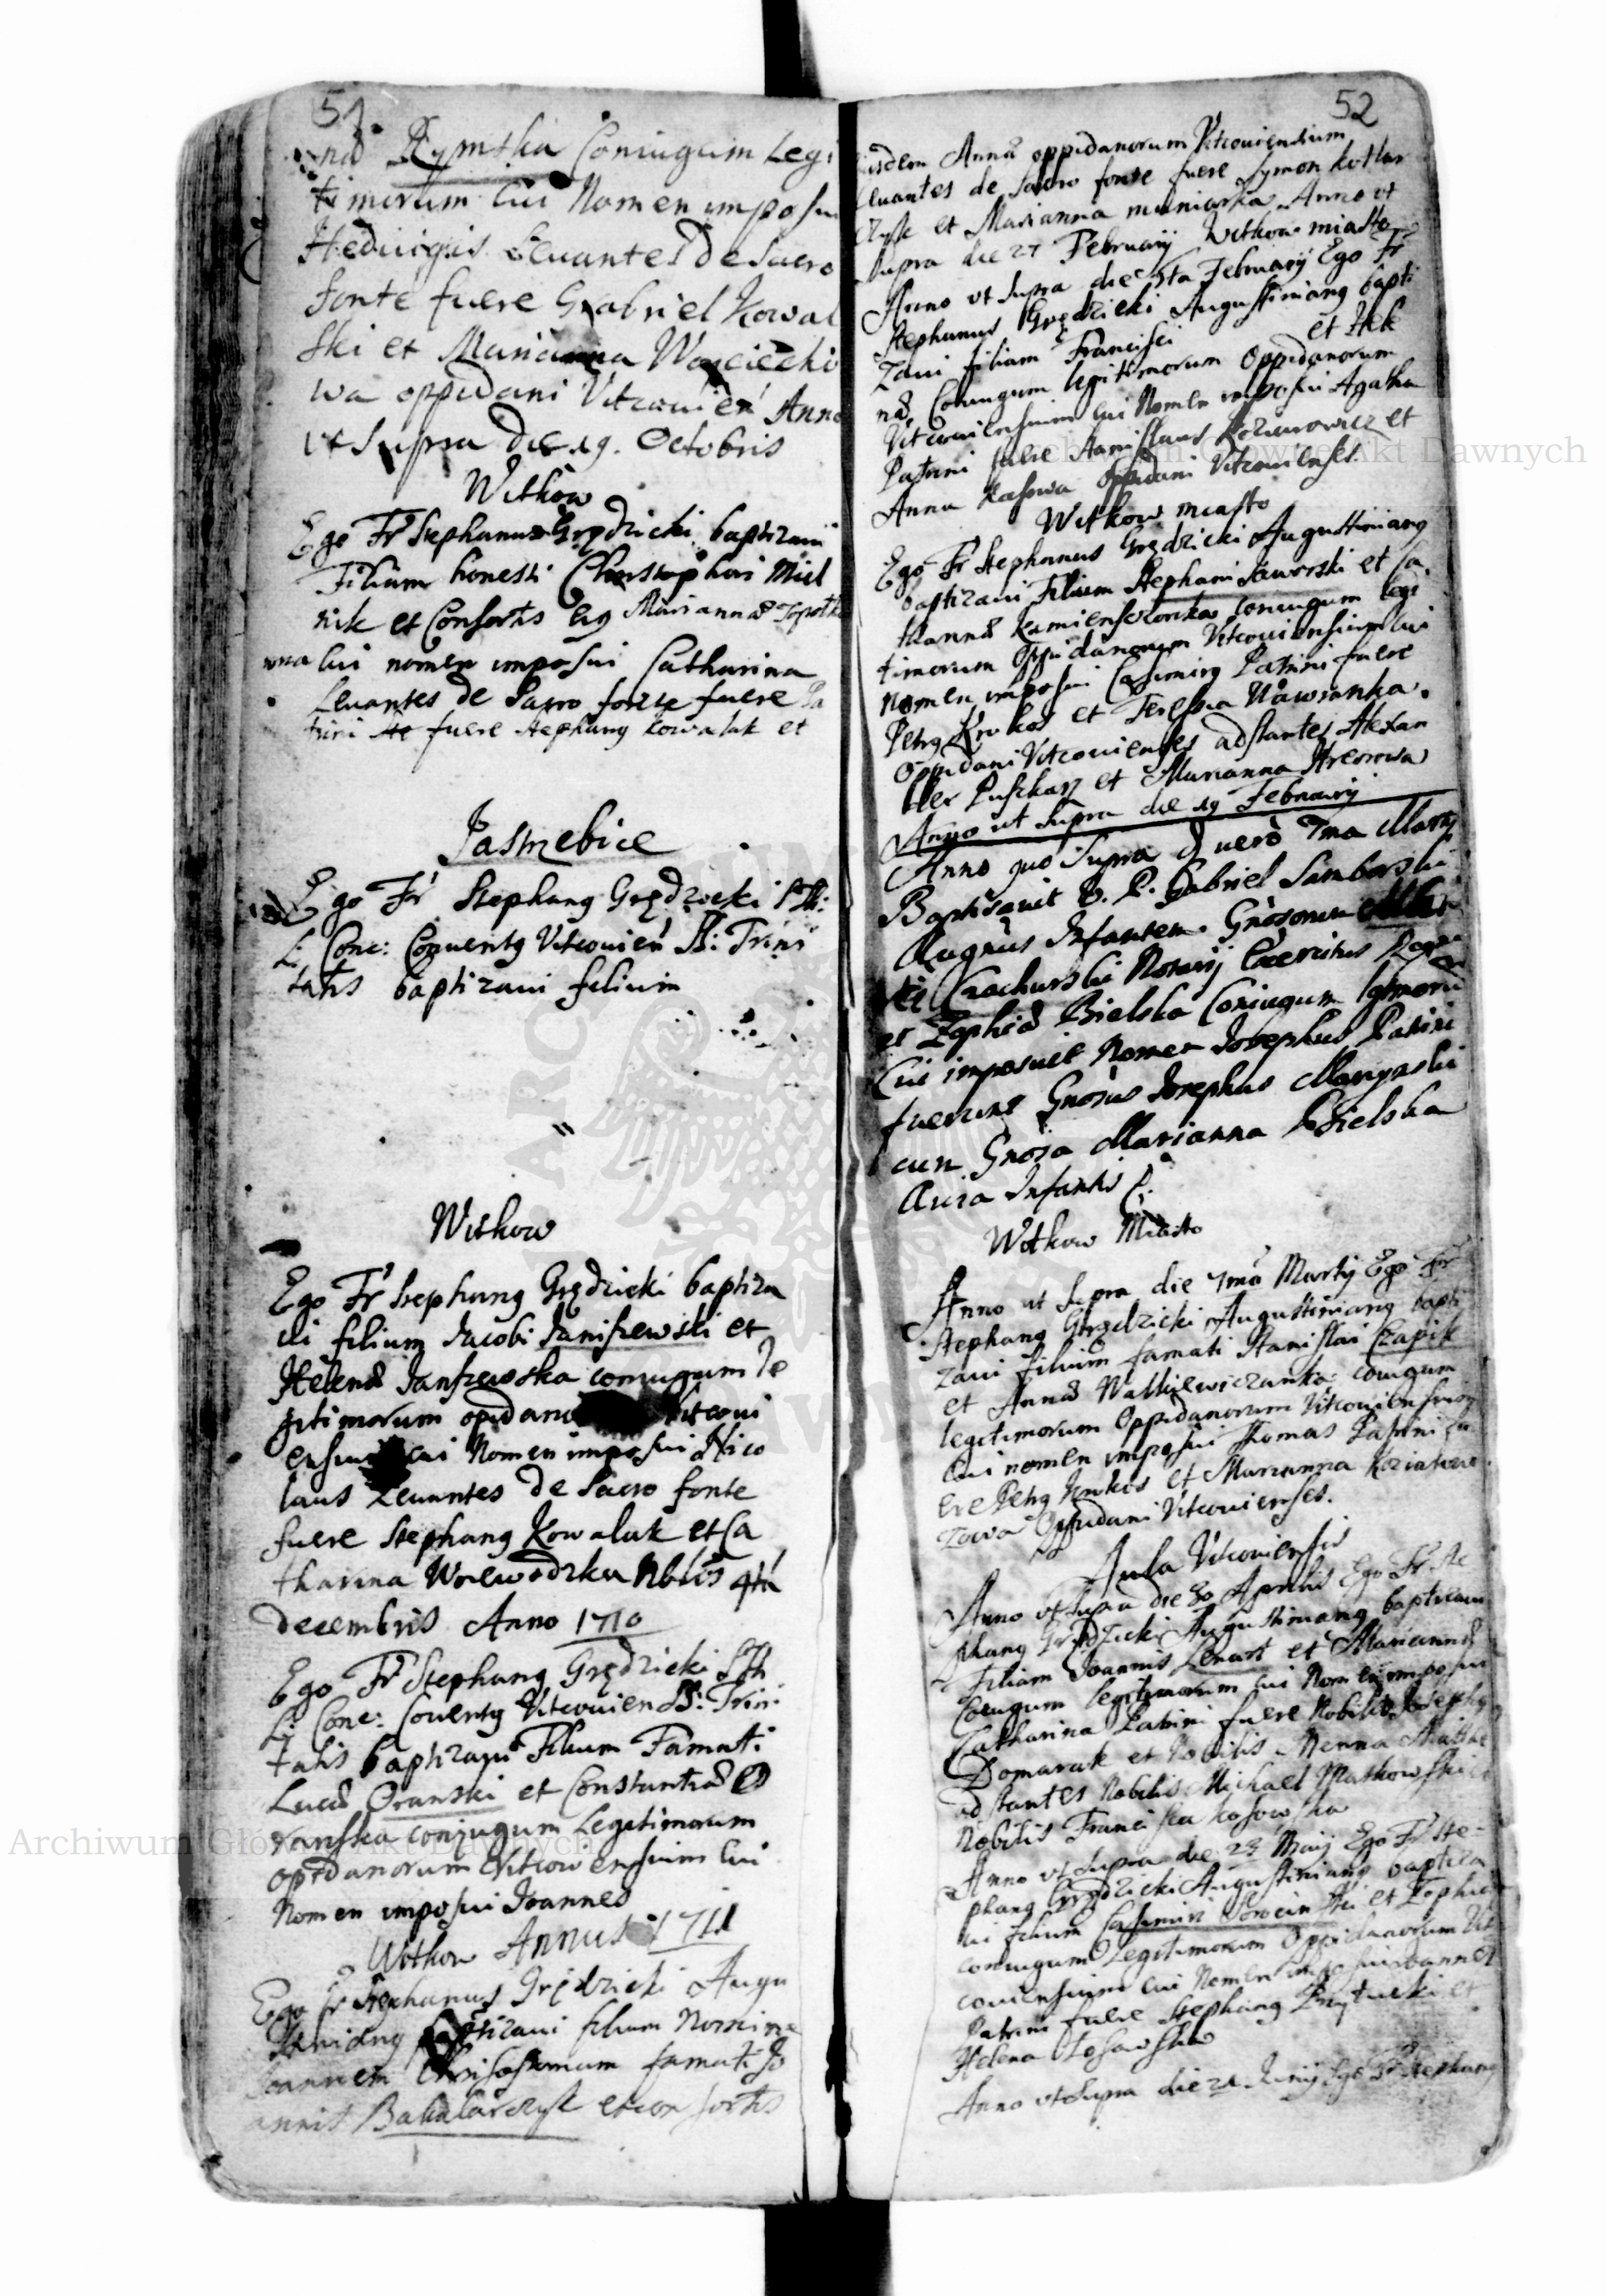 51
Rymska Coniugum Legi
timorum Cui Nomen imposui
Heduigis Leuantes de Sacro
fonte fuere Gabriel Kowal
ski et Marianna Woyciecho
wa oppidani Vitcouien Anno
ut Supra die 19. Octobris
Witkow
Ego Fr Stephanus Grędzicki baptizaui
Filiam honesti Christophori Miel
nik et Consortis eig Mariannæ
cui nomen imposui Catharina
Leuantes de Sacro fonte fuere Pa
trini fuere Stephang Kowalak et
Jastrzebice
Ego Fr Stephang Grędzicki STh:
L: Conc: Conuentg Vitcouien SS: Trini
tatis baptizaui filium
Witkow
Ego Fr Stephang Grędzicki baptiza
ui filium Jacobi Janiszewski et
Helenæ Janszewska coniugum le
gitimorum opidano Vitcoui
ensium cui Nomen imposui Nico
laus Leuantes de Sacro fonte
fuere Stephang Kowalak et Ca
tharina Woiewodzka Nblis 4ta
decembris Anno 1710
Ego Fr Stephang Grędzicki STh
L: Conc: Couentg Vitcouien SS: Trini
tatis baptizaui Filium Famati
Lucæ Oranski et Constantiæ O
ranska conjugum Legitimorum
opidanorum Vitcowensium Cui
Nomen imposui Joannes
Witkow Annus 1711
Ego Fr Stephanus Grędzicki Augu
stiniang baptizaui filium Nomine
Joannem Chrisostomum famati Jo
annis Bakalarczyk et consortis
52
eiusdem Annæ oppidanorum Vitcouiensium
Leuantes de Sacro fonte fuere Symon kotlar
czyk et Marianna Anno ut
Supra die 27 February Witkow miasto
Anno ut Supra die 5ta February Ego Fr
Stephanus Grędzicki Augustiniang bapti
zaui filiam Francisci et Hele
næ Coniugum legitimorum Oppidanorum
Vitcouiensium cui Nomen imposui Agatha
Patrini fuere Stanislaus et
Anna oppidani Vitcouienses
Witkow miasto
Ego Fr Stephanus Grędzicki Augustiniang
baptizaui Filium Stephani Jaworski et Ca
tharinæ coniugum legi
timorum Oppidanorum Vitcouiensium cui
Nomen imposui Casimirg Patrini fuere
Petrg Krukos et Teressia Wawranka
Oppidani Vitcouienses adstantes Alexan
der Puszkarz et Marianna
Anno ut Supra die 19 February
Anno quo Supra d uero 7ma Marty
Baptisauit V. P. Gabriel Samborski
Infantem Gnosorum
Crachurski Notarij Regni
et Zophiæ Bielska Coniugum lgtmoru
Cui imposuit Nomen Josephus Patrini
fuerunt Gnosus Josephus
cum Gnosa Marianna Bielska
Auia Infantis
Witkow Miasto
Anno ut Supra die 7ma Marty Ego Fr
Stephang Grędzicki Augustiniang bapti
zaui filium famati Stanislai Czapik
et Annæ coniugum
legitimorum Oppidanorum Vitcouiensium
Cui nomen imposui Thomas Patrini fu
ere Petrg Krukos et Marianna
zowa Oppidani Vitcouienses.
Aula Vitcouiensis
Anno ut Supra die 30 Aprilis Ego Fr Ste
phang Grędzicki Augustiniang baptizaui
Filiam Joannis Lenart et Mariannæ
Coniugum legitimorum cui Nomen imposui
Catharina Patrini fuere Nobilis Josephg
Domarak et Nobilis
adstantes Nobilis Michael Matkowski et
Nobilis Francisca Kosowska
Anno ut Supra die 23 Maij Ego Fr Ste-
phang Grędzicki Augustiniang baptiza
ui filium Casimiri et Zophiæ
coniugum Legitimorum Oppidanorum Vit
couiensium cui Nomen imposui Joannes
Patrini fuere Stephang et
Helena
Anno ut Supra die 21 Junij Ego Fr Stephang
Archiwum Główne Akt Dawnych
Archiwum Główne Akt Dawnych